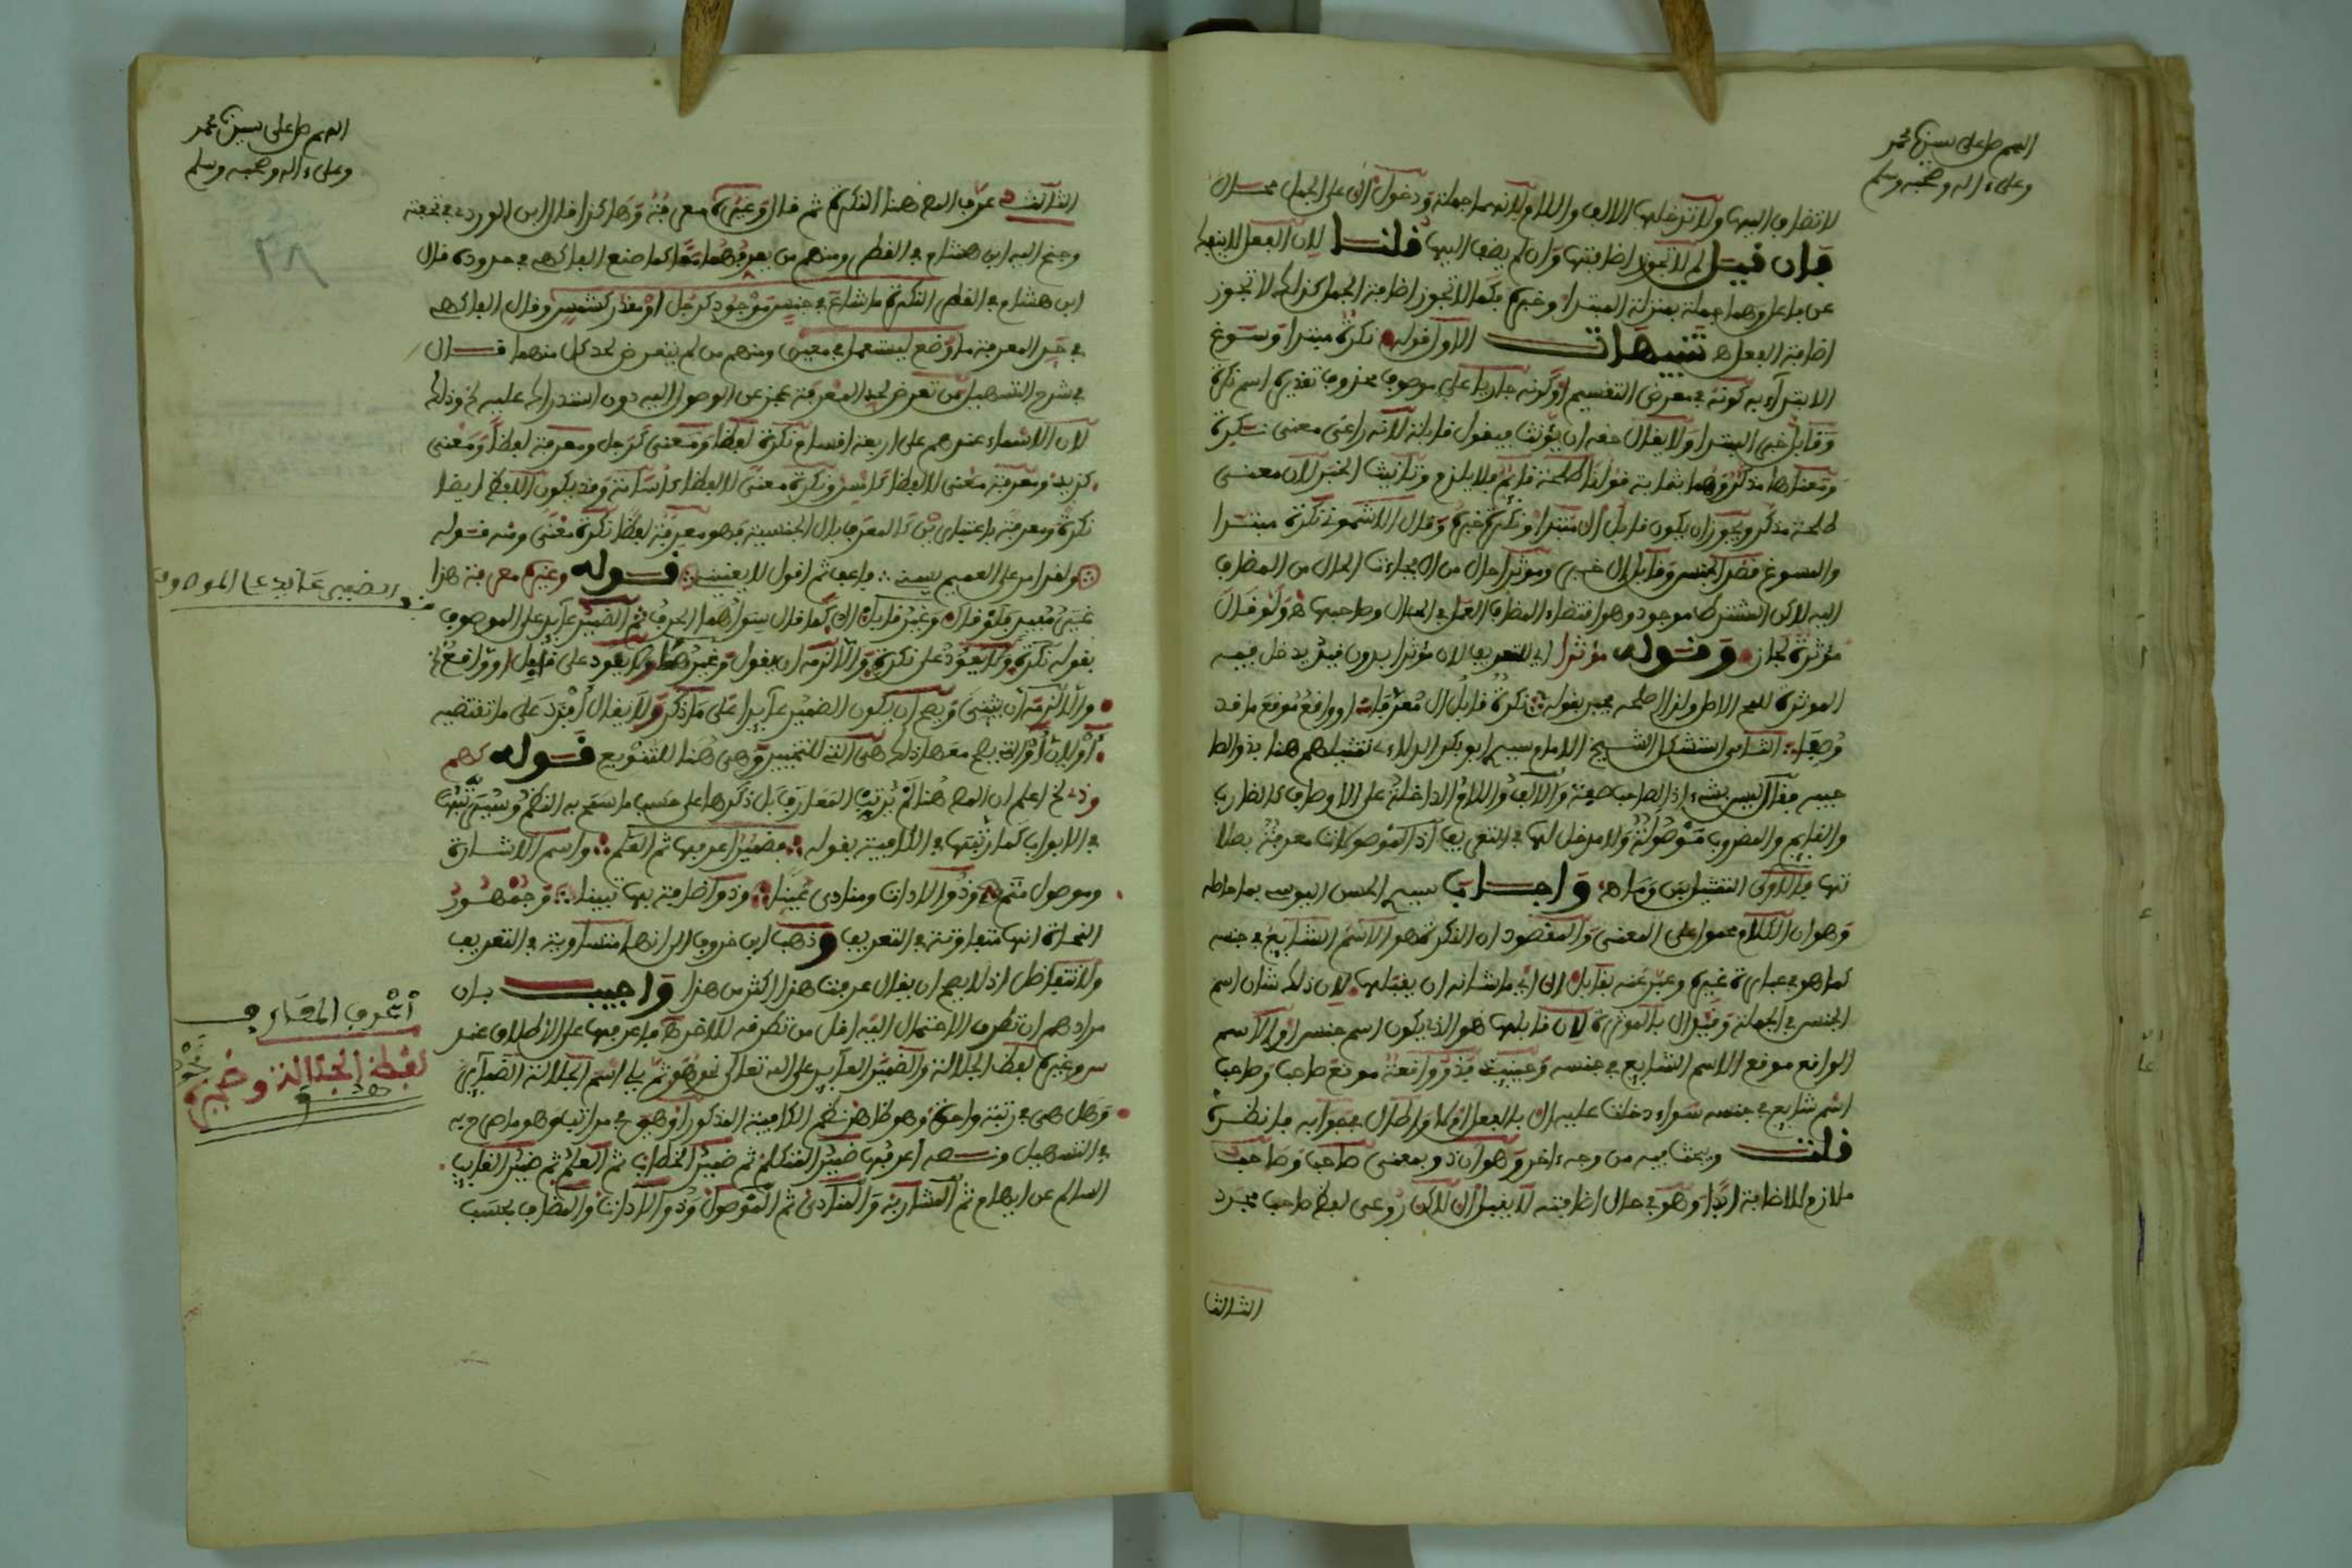 اللهم صل على سيدنا محمد
وعلى ءاله وصحبه وسلم
لا تضاف اليها ولا تدخلها الالف واللام لانهما جملة ودخول ال على الجمل محال
فإن قيل لم لا تجوز اضافتها وان لم يضف اليها قلنا لان الفعل لا ينفك
عن فاعل وهما جملة بمنزلة المبتدا وخبره فكما لا تجوز اضافة الجمل كذلك لا تجوز
اضافة الفعل اهـ تنبيهات الاول قوله نكرة مبتدا وسوغ
الابتداء به كونه في معرض التقسيم او كونه جاريا على موصوف محذوف تقديره اسم نكرة
وقابل خبر المبتدا ولا يقال حقه ان يؤنث فيقول قابلة لانه راعى معنى نكرة
ومعناها مذكر وهما بمثابة قولنا طلحة قائم فلا يلزم تانيث الخبر لان معنى
طلحة مذكر ويجوز ان يكون قابل ال مبتدا ونكرة خبره وقال الاشموني نكرة مبتدا
والمسوغ قصد الجنس وقابل ال خبر ومؤثرا حال من ال جاءت الحال من المضاف
اليه لاكن الشرط موجود وهو اقتضاء المضاف العمل في الحال وصاحبها ولو قال
مؤثرة لجاز وقوله مؤثرا اي للتعريف لان مؤثرا بدون قيد يدخل فيه
المؤثرة للمح الاصل ولذا اصلحه بعضهم بقوله نكرة قابل ال معرفا او واقع موقع ما قد
وصفا الثاني استشكل الشيخ الامام سيدي ابو بكر الدلاءي تمثيلهم هنا بذو اذ لا
جيبه فقال ليس بشيء اذ الصاحب صفة والالف واللام الداخلة على الاوصاف كالضارب
والقايم والمضروب موصولة ولا مدخل لها في التعريف اذ الموصولات معرفة بصلا
تها فالاولى التمثيل بمن وما اهـ واجاب سيدي الحسن اليوسي بما حاصله
وهو ان الكلام محمول على المعنى والمقصود ان النكرة هو الاسم الشايع في جنسه
كما هو في عبارة غيره وعبر عنه بقابل ال اي ما شانه ان يقبلها لان ذلك شان اسم
الجنس في الجملة وقيد ال بالمؤثرة لان قابلها هو الذي يكون اسم جنس او الاسم
الواقع موقع الاسم الشايع في جنسه وحينئذ فذو واقعة موقع صاحب وصاحب
اسم شايع في جنسه سواء دخلت عليه ال بالفعل ام لا واطال في جوابه فانظره
قلت ويبحث فيه من وجه ءاخر وهو ان ذو بمعنى صاحب وصاحب
ملازم للاضافة ابدا وهو في حال اضافته لا يقبل ال لاكن روعي لفظ صاحب مجرد
الثالث
اللهم صل على سيدنا محمد
وعلى ءاله وصحبه وسلم
الثالث عرف المص هنا النكرة ثم قال وغيره معرفة وهاكذا فعل ابن الوردي في تحفته
وجنح اليه ابن هشام في القطر ومنهم من يعرفهما معا كما صنع الفاكهي في حدوده قال
ابن هشام في القطر النكرة ما شاع في جنس موجود كرجل او مقدر كشمس وقال الفاكهي
في حد المعرفة ما وضع ليستعمل في معين ومنهم من لم يتعرض لحد كل منهما قال
في شرح التسهيل من تعرض لحد المعرفة عجز عن الوصول اليه دون استدراك عليه وذلك
لان الاسماء عندهم على اربعة اقسام نكرة لفظا ومعنى كرجل ومعرفة لفظا ومعنى
كزيد ومعرفة معنى لا لفظا كامس ونكرة معنى لا لفظا كاسامة وقد يكون اللفظ ايضا
نكرة ومعرفة باعتبارين كالمعرف بال الجنسية فهو معرفة لفظا نكرة معنى ومنه قوله
ولقد امر على اللئيم يسبني فاعف ثم اقول لا يعنيني قوله وغيره معرفة هذا
الضمير عايد على الموصوف
بقوله نكرة ولا يعود على نكرة والا لزمه ان يقول وغيرها ولا يعود على قابل او واقع
والا لزمه ان يثني وصح ان يكون الضمير عايدا على ما ذكر ولا يقال افرد على ما تقتضيه
او لان او التي يصح معها ذلك هي التي للتخيير وهي هنا للتنويع قوله كهم
وذي الخ اعلم ان المص هنا لم يرتب المعارف بل ذكرها على حسب ما سمح به النظم وسيرتبها
في الابواب كما رتبها في الكافية بقوله فمضمر اعرفها ثم العلم واسم الاشارة
وموصول متم وذو الاداة ومنادى عينا وذو اضافة بها تبينا وجمهور
النحاة انها متفاوتة في التعريف وذهب ابن حزم الى انها متساوية في التعريف
ولا تتفاضل اذ لا يصح ان يقال عرفت هذا اكثر من هذا واجيب بان
مرادهم ان تطرق الاحتمال اليه اقل من تطرقه للاخر فاعرفها على الاطلاق عند
سيبويه وغيره لفظ الجلالة والضمير العايد على الله تعالى نحو هو ثم يلي اسم الجلالة الضماير
وهل هي في رتبة واحدة وهو ظاهر نظم الكافية المذكور او هي في مراتب وهو ما صرح به
في التسهيل ونصه اعرفها ضمير المتكلم ثم ضمير المخاطب ثم العلم ثم ضمير الغايب
السالم عن ابهام ثم المشار به والمنادى ثم الموصول وذو الاداة والمضاف بحسب
الضمير عايد على الموصوف
أعرف المعارف
لفظ الجلالة وضميره